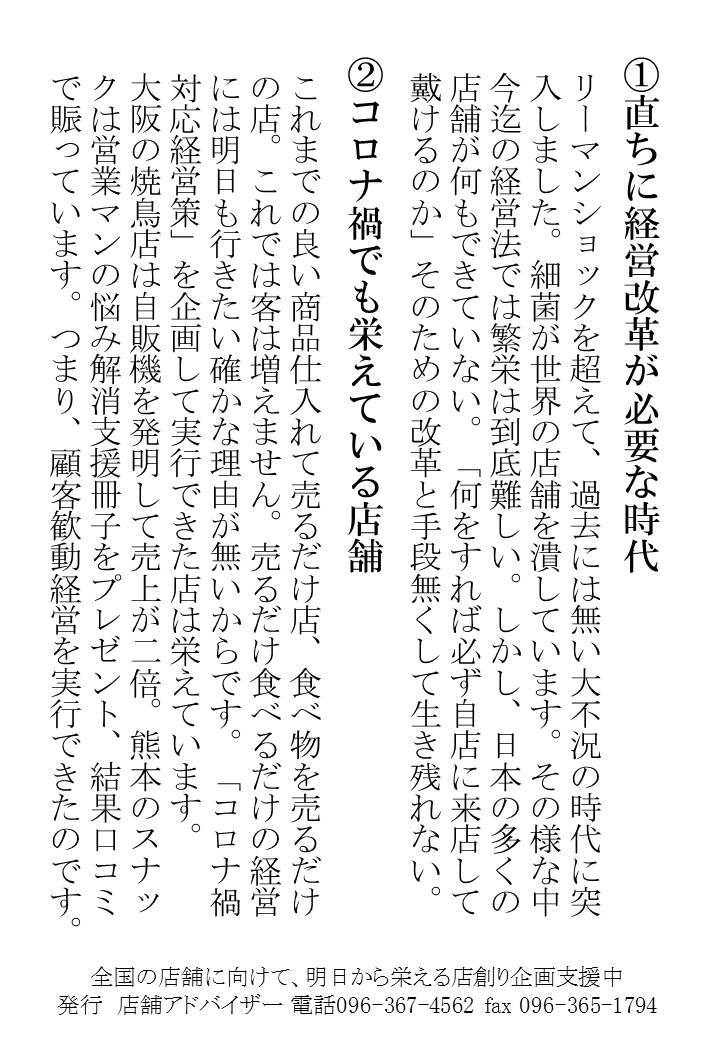 ①直ちに経営改革が必要な時代
リーマンショックを超えて、過去には無い大不況の時代に突
入しました。細菌が世界の店舗を潰しています。その様な中
今迄の経営法では繁栄は到底難しい。しかし、日本の多くの
店舗が何もできていない。「何をすれば必ず自店に来店して
戴けるのか」そのための改革と手段無くして生き残れない。
②コロナ禍でも栄えている店舗
これまでの良い商品仕入れて売るだけ店、食べ物を売るだけ
の店。これでは客は増えません。売るだけ食べるだけの経営
には明日も行きたい確かな理由が無いからです。「コロナ禍
対応経営策」を企画して実行できた店は栄えています。
大阪の焼鳥店は自販機を発明して売上が二倍。熊本のスナッ
クは営業マンの悩み解消支援冊子をプレゼント、結果口コミ
で賑っています。つまり、顧客歓動経営を実行できたのです。
全国の店舗に向けて、明日から栄える店創り企画支援中
発行 店舗アドバイザー 電話096-367-4562 fax 096-365-1794